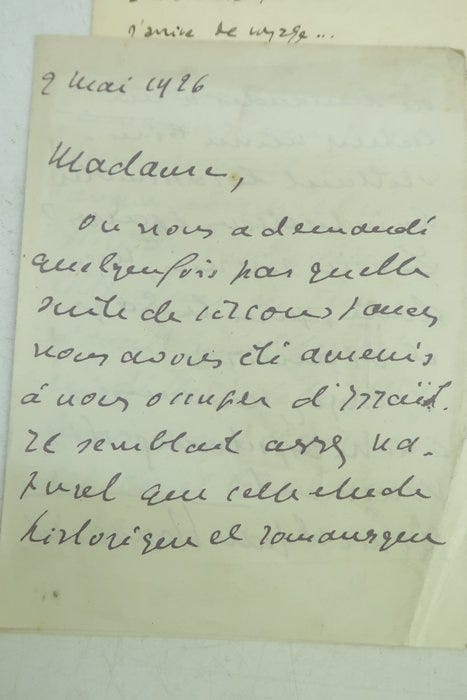 j'arrive de voyage...
9 mai 1926
Madame,
On nous a demandé
quelquefois par quelle
suite de circonstances
nous avons été amenés
à nous occuper d'Israël.
Il semblait assez na-
turel que cette étude
historique et romanesque